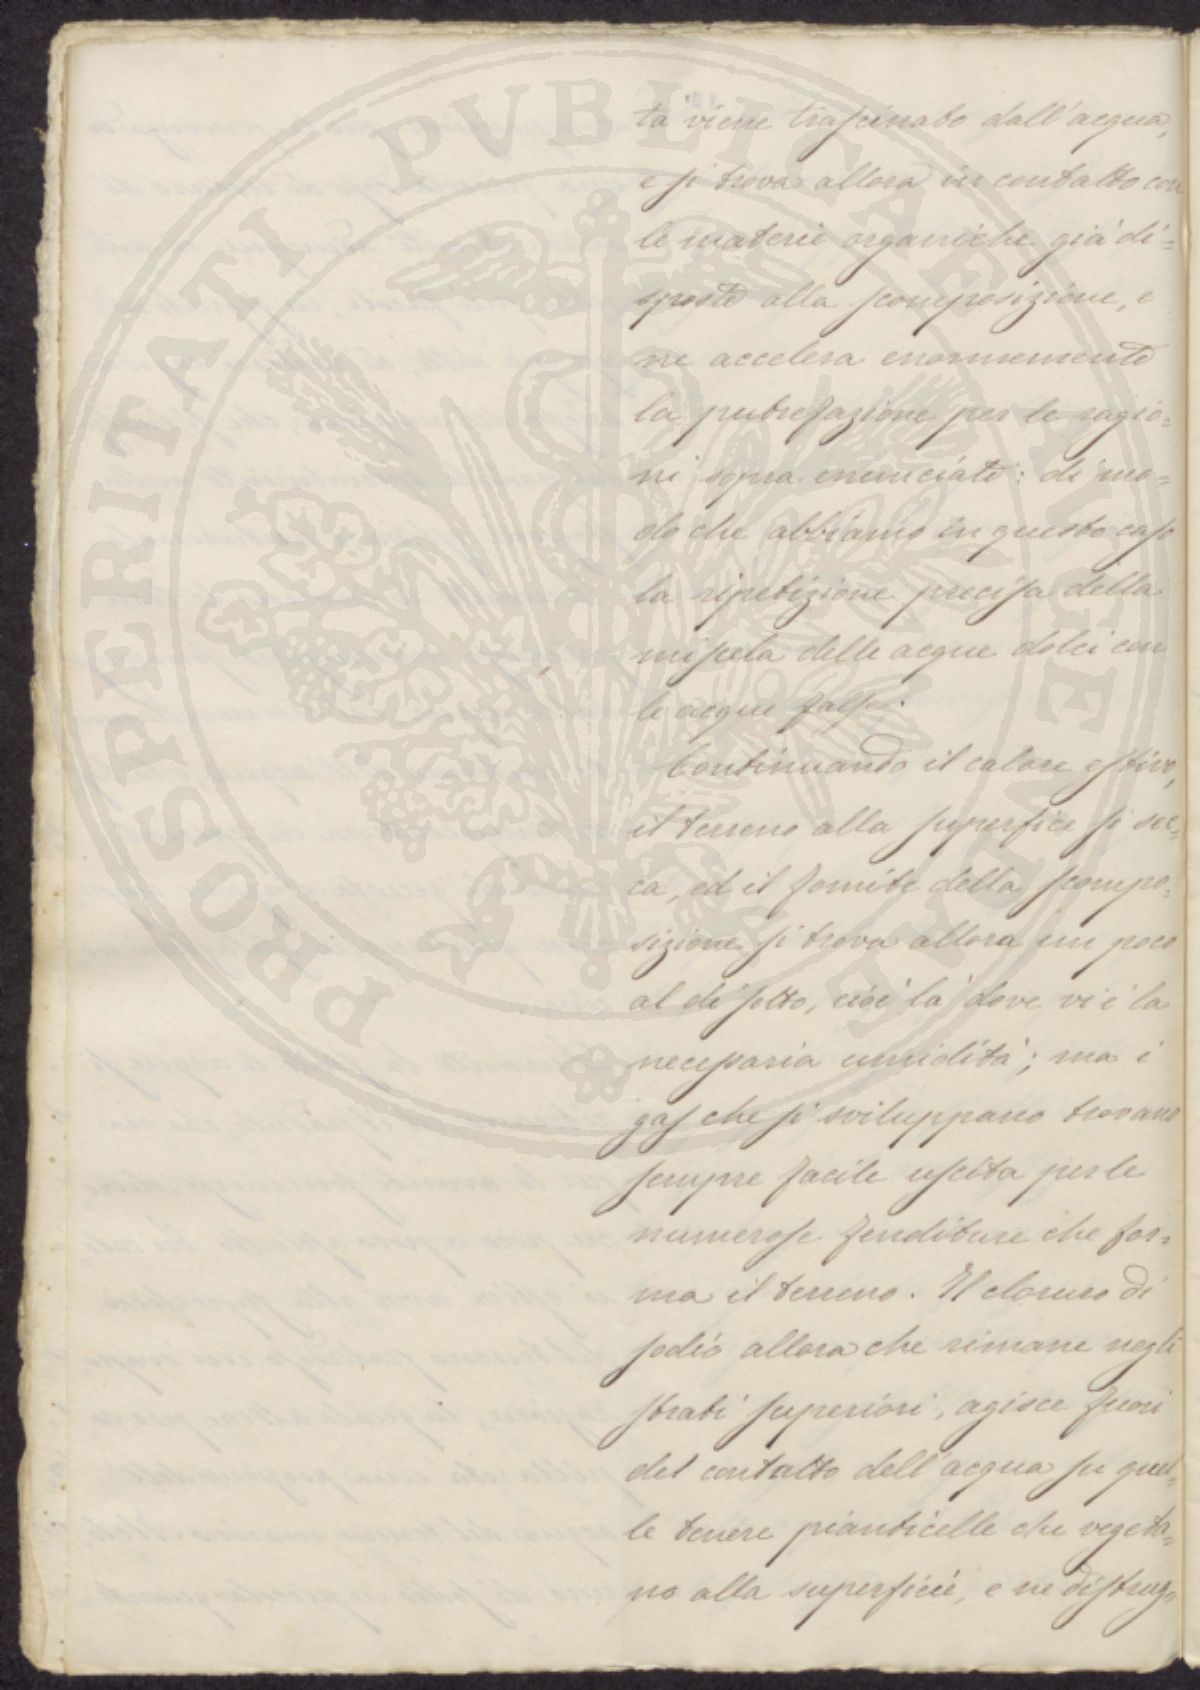 PROSPERITATI PVBLICAE AVGENDAE
ta viene trascinato dall'acqua,
e si trova allora in contatto con
le materie organiche già di=
sposte alla scomposizione, e
ne accelera enormemente
la putrefazione per le ragio=
ni sopra enunciate: di mo=
do che abbiamo in questo caso
la ripetizione precisa della
miscela delle acque dolci con
le acque salse.
Continuando il calore estivo,
il terreno alla superfice si sec=
ca, ed il fomite della scompo=
sizione si trova allora un poco
al di sotto, cioè là dove vi è la
necessaria umidità; ma i
gas che si sviluppano trovano
sempre facile uscita per le
numerose fenditure che for=
ma il terreno. Il cloruro di
sodio allora che rimane negli
strati superiori, agisce fuori
del contatto dell'acqua su quel=
le tenere pianticelle che vegeta=
no alla superficie, e ne distrug=